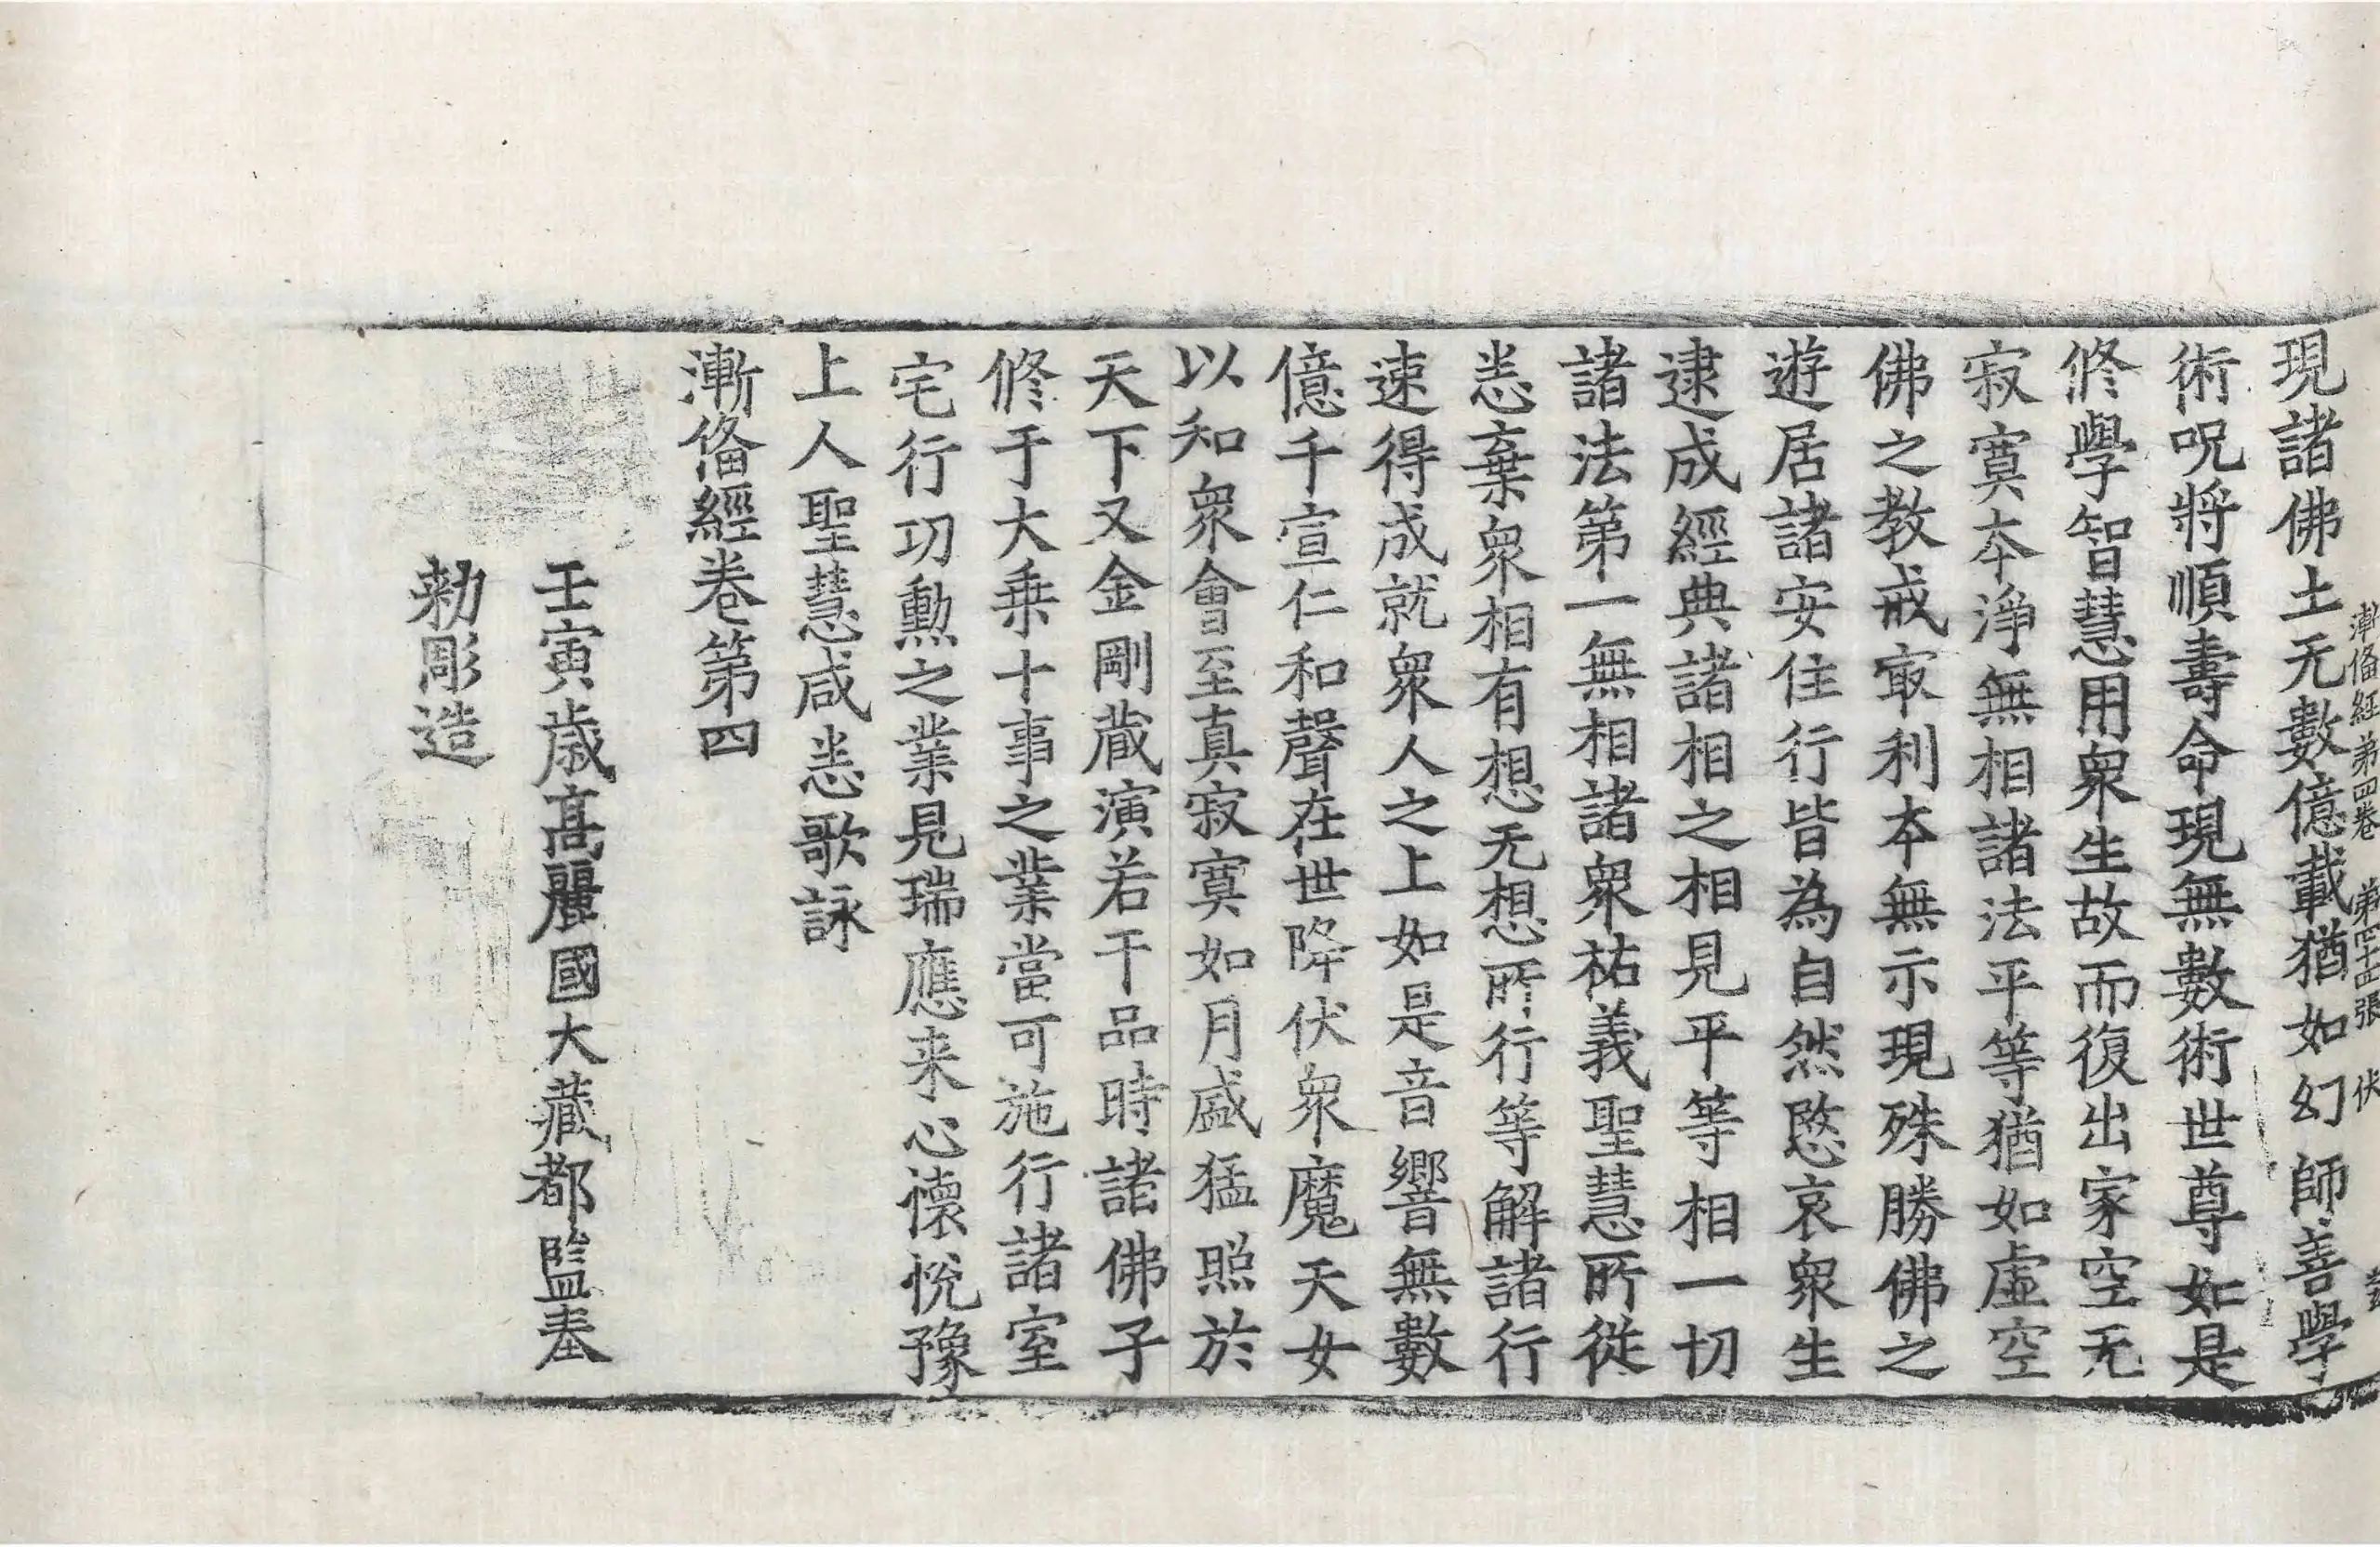 漸俻経第四卷 第四十四張 伏
現諸佛土无數億載猶如幻師善學
術呪將順壽命現無數術世尊如是
修學智慧用衆生故而復出家空无
寂寞本淨無相諸法平等猶如虛空
佛之教戒㝡利本無示現殊勝佛之
遊居諸安住行皆為自然愍哀衆生
逮成經典諸相之相見平等相一切
諸法第一無相諸衆祐義聖慧所從
恙棄衆相有想无想所行等解諸行
速得成就衆人之上如是音響無數
億千宣仁和聲在世降伏衆魔天女
以知衆會至真寂寞如月盛猛照於
天下又金剛蔵演若干品時諸佛子
修于大乗十事之業當可施行諸室
宅行功勲之業見瑞應来心懷悅豫
上人聖慧咸恙歌詠
漸俻經卷第四
壬寅歳髙麗國大藏都監奉
勑彫造